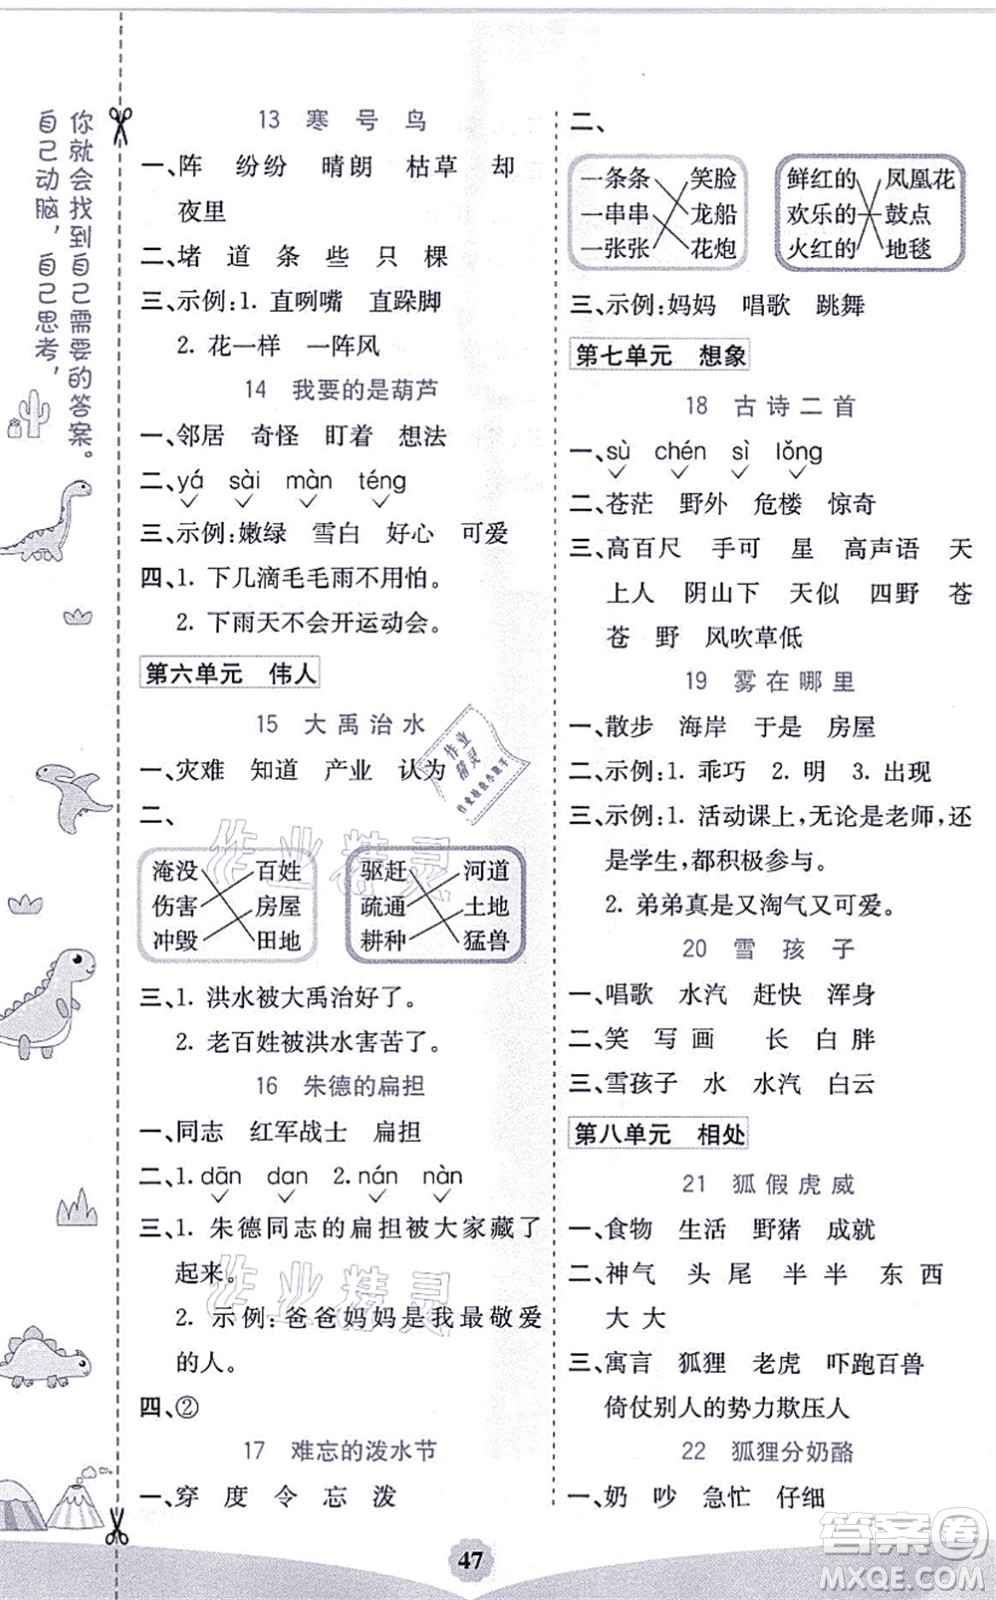 你就会找到自己需要的答案。
自己动脑，自己思考，
13 寒号鸟
一、阵 纷纷 晴朗 枯草 却
夜里
二、堵 道 条 些 只 棵
三、示例：1. 直咧嘴 直跺脚
2. 花一样 一阵风
14 我要的是葫芦
一、邻居 奇怪 盯着 想法
二、yá sài màn téng
三、示例：嫩绿 雪白 好心 可爱
四、1. 下几滴毛毛雨不用怕。
2. 下雨天不会开运动会。
第六单元 伟人
15 大禹治水
一、灾难 知道 产业 认为
二、
淹没 百姓
伤害 房屋
冲毁 田地
驱赶 河道
疏通 土地
耕种 猛兽
三、1. 洪水被大禹治好了。
2. 老百姓被洪水害苦了。
16 朱德的扁担
一、同志 红军战士 扁担
二、1. dān dan 2. nán nàn
三、1. 朱德同志的扁担被大家藏了
起来。
2. 示例：爸爸妈妈是我最敬爱
的人。
四、②
17 难忘的泼水节
一、穿 度 令 忘 泼
二、
一条条 笑脸
一串串 龙船
一张张 花炮
鲜红的 凤凰花
欢乐的 鼓点
火红的 地毯
三、示例：妈妈 唱歌 跳舞
第七单元 想象
18 古诗二首
一、sù chén sì lǒng
二、苍茫 野外 危楼 惊奇
三、高百尺 手可 星 高声语 天
上人 阴山下 天似 四野 苍
苍 野 风吹草低
19 雾在哪里
一、散步 海岸 于是 房屋
二、示例：1. 乖巧 2. 明 3. 出现
三、示例：1. 活动课上，无论是老师，还
是学生，都积极参与。
2. 弟弟真是又淘气又可爱。
20 雪孩子
一、唱歌 水汽 赶快 浑身
二、笑 写 画 长 白 胖
三、雪孩子 水 水汽 白云
第八单元 相处
21 狐假虎威
一、食物 生活 野猪 成就
二、神气 头 尾 半 半 东 西
大 大
三、寓言 狐狸 老虎 吓跑百兽
倚仗别人的势力欺压人
22 狐狸分奶酪
一、奶 吵 急忙 仔细
47
作业精灵
作业精灵
作业精灵
作业检查小能手
答案圈
MXQE.COM